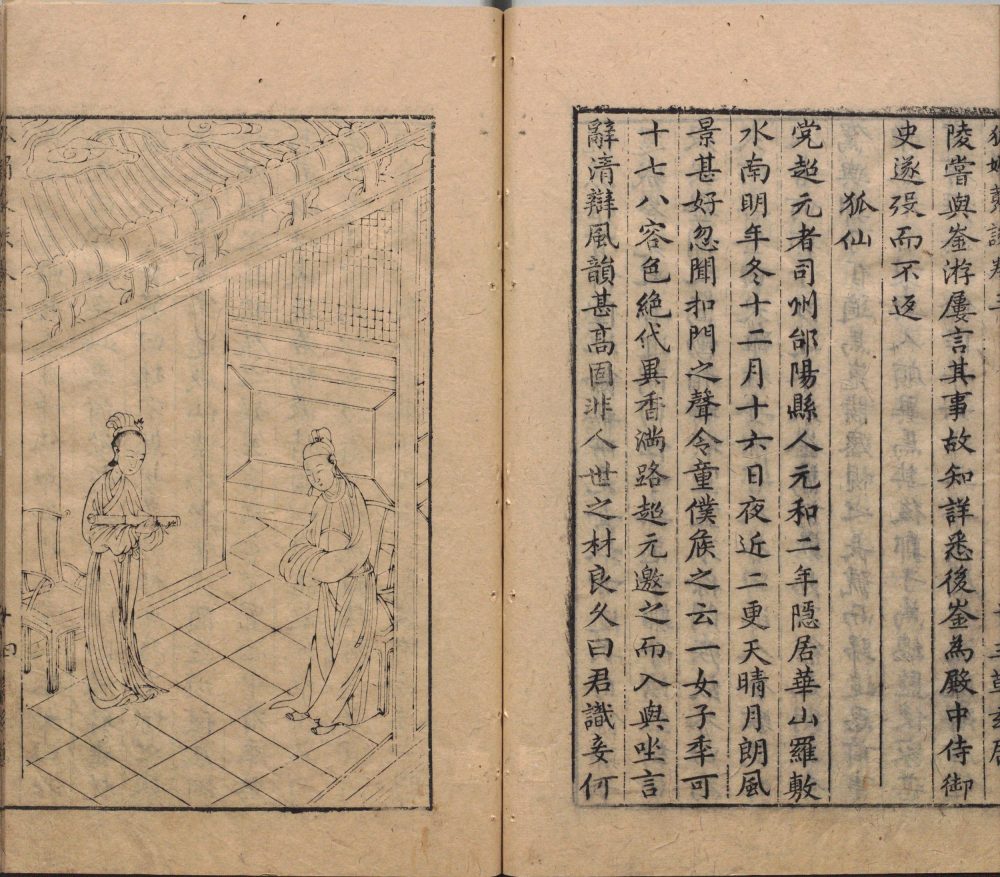 陵嘗與崟游屢言其事故知詳悉後崟為殿中侍御
史遂歿而不返
狐仙
党超元者司州郃陽縣人元和二年隱居華山羅敷
水南明年冬十二月十六日夜近二更天晴月朗風
景甚好忽聞扣門之聲令童僕候之云一女子年可
十七八容色絕代異香滿路超元邀之而入與坐言
辭清辯風韻甚高固非人世之材良久曰君識妾何